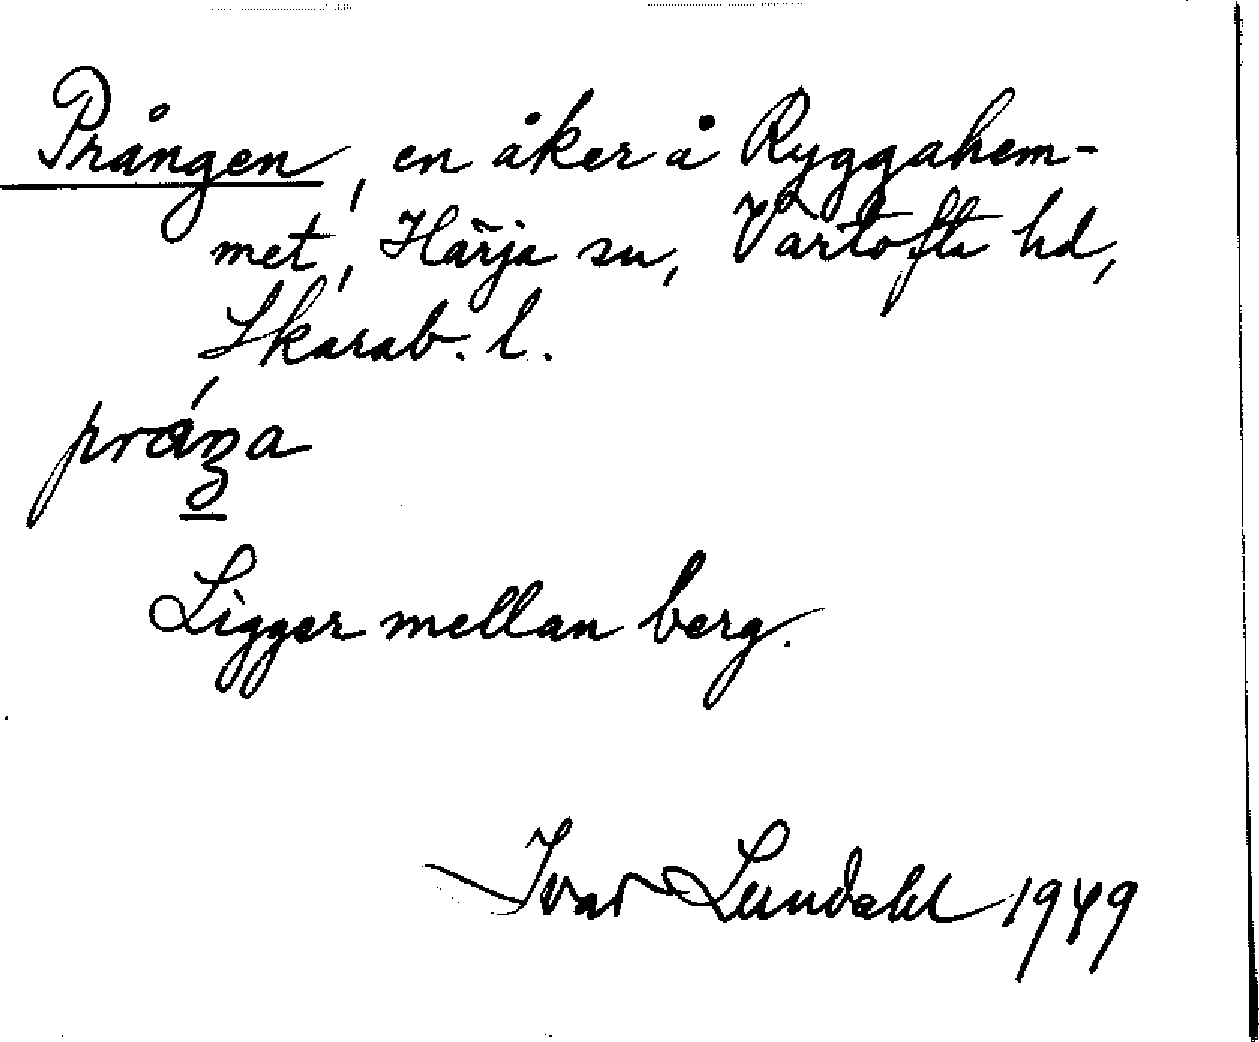 Prången, en åker å Ryggahem-
met, Härja sn, Vartofta hd,
Skarab. l.
Ligger mellan berg.
Ivar Lundahl 1949